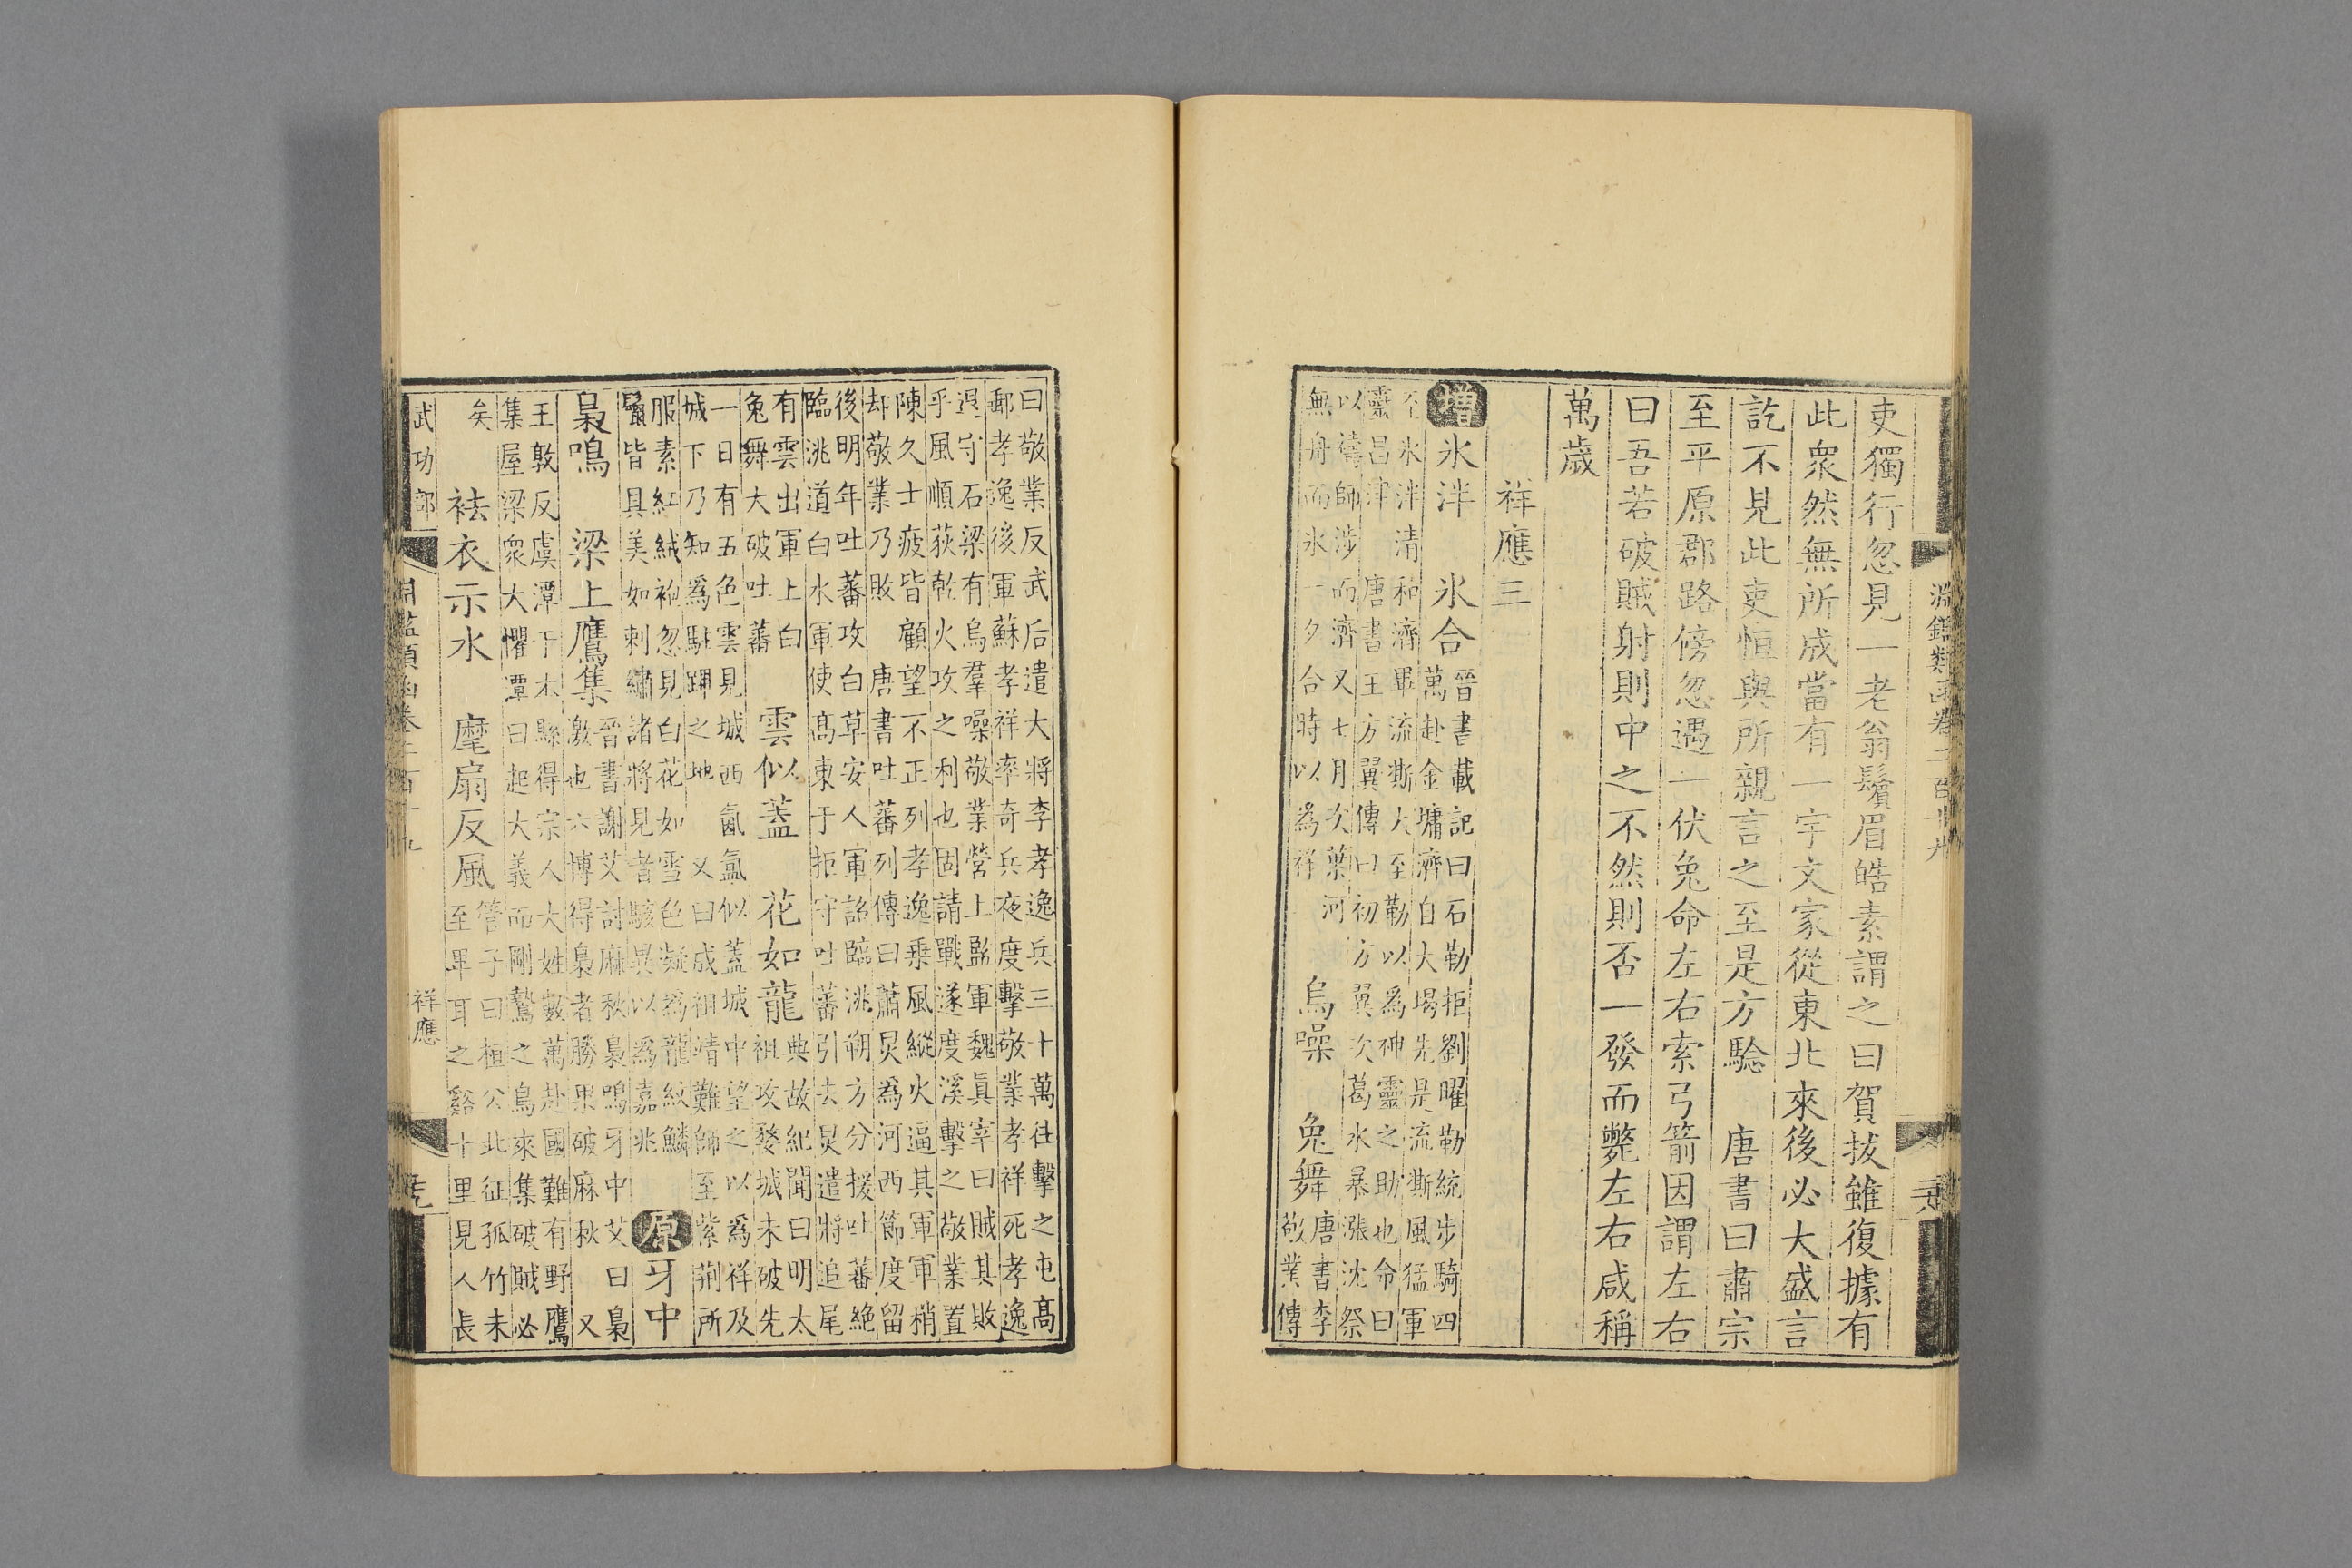 吏獨行忽見一老翁鬢眉皓素謂之曰賀拔雖復據有
此衆然無所成當有一宇文家從東北來後必大盛言
訖不見此吏恒與所親言之至是方驗　唐書曰肅宗
至平原郡路傍忽遇一伏兔命左右索弓箭因謂左右
曰吾若破賊射則中之不然則否一發而斃左右咸稱
萬歲
祥應三
增氷泮　氷合
晉書載記曰石勒拒劉曜勒統步騎四
萬赴金墉濟自大堨先是流澌風猛軍
至氷泮清和濟畢流澌大至勒以爲神靈之助也命曰
靈昌津　唐書王方翼傳曰初方翼次葛水暴漲沈祭
以禱師涉而濟又七月次葉河
無舟而氷一夕合時以為祥
烏噪　兔舞
唐書李
敬業傳
曰敬業反武后遣大將李孝逸兵三十萬往擊之屯高
郵孝逸後軍蘇孝祥率奇兵夜度擊敬業孝祥死孝逸
退守石梁有烏羣噪敬業營上監軍魏眞宰曰賊其敗
乎風順荻乾火攻之利也固請戰遂度溪擊之敬業置
陳久士疲皆顧望不正列孝逸乗風縱火逼其軍軍稍
却敬業乃敗　唐書吐蕃列傳曰蕭炅爲河西節度留
後明年吐蕃攻白草安人軍詔臨洮朔方分援吐蕃絶
臨洮道白水軍使高柬于拒守吐蕃引去炅遣將追尾
有雲出軍上白
兔舞大破吐蕃
雲似蓋　花如龍
典故紀聞曰明太
祖攻婺城未破先
一日有五色雲見城西氤氳似蓋城中望之以爲祥及
城下乃知爲駐蹕之地　又曰成祖靖難師至紫荆所
服素紅絨袍忽見白花如雪色凝爲龍紋鱗
鬣皆具美如刺繡諸將見者駭異以爲嘉兆
原牙中
梟鳴　梁上鷹集
晉書謝艾討麻秋梟鳴牙中艾曰梟
激也六博得梟者勝果破麻秋　又
王敦反虞潭于本縣得宗人大姓數萬赴國難有野鷹
集屋梁衆大懼潭曰起大義而剛鷙之鳥來集破賊必
矣
袪衣示水　麾扇反風
管子曰桓公北征孤竹未
至卑耳之谿十里見人長
武功部
祥應